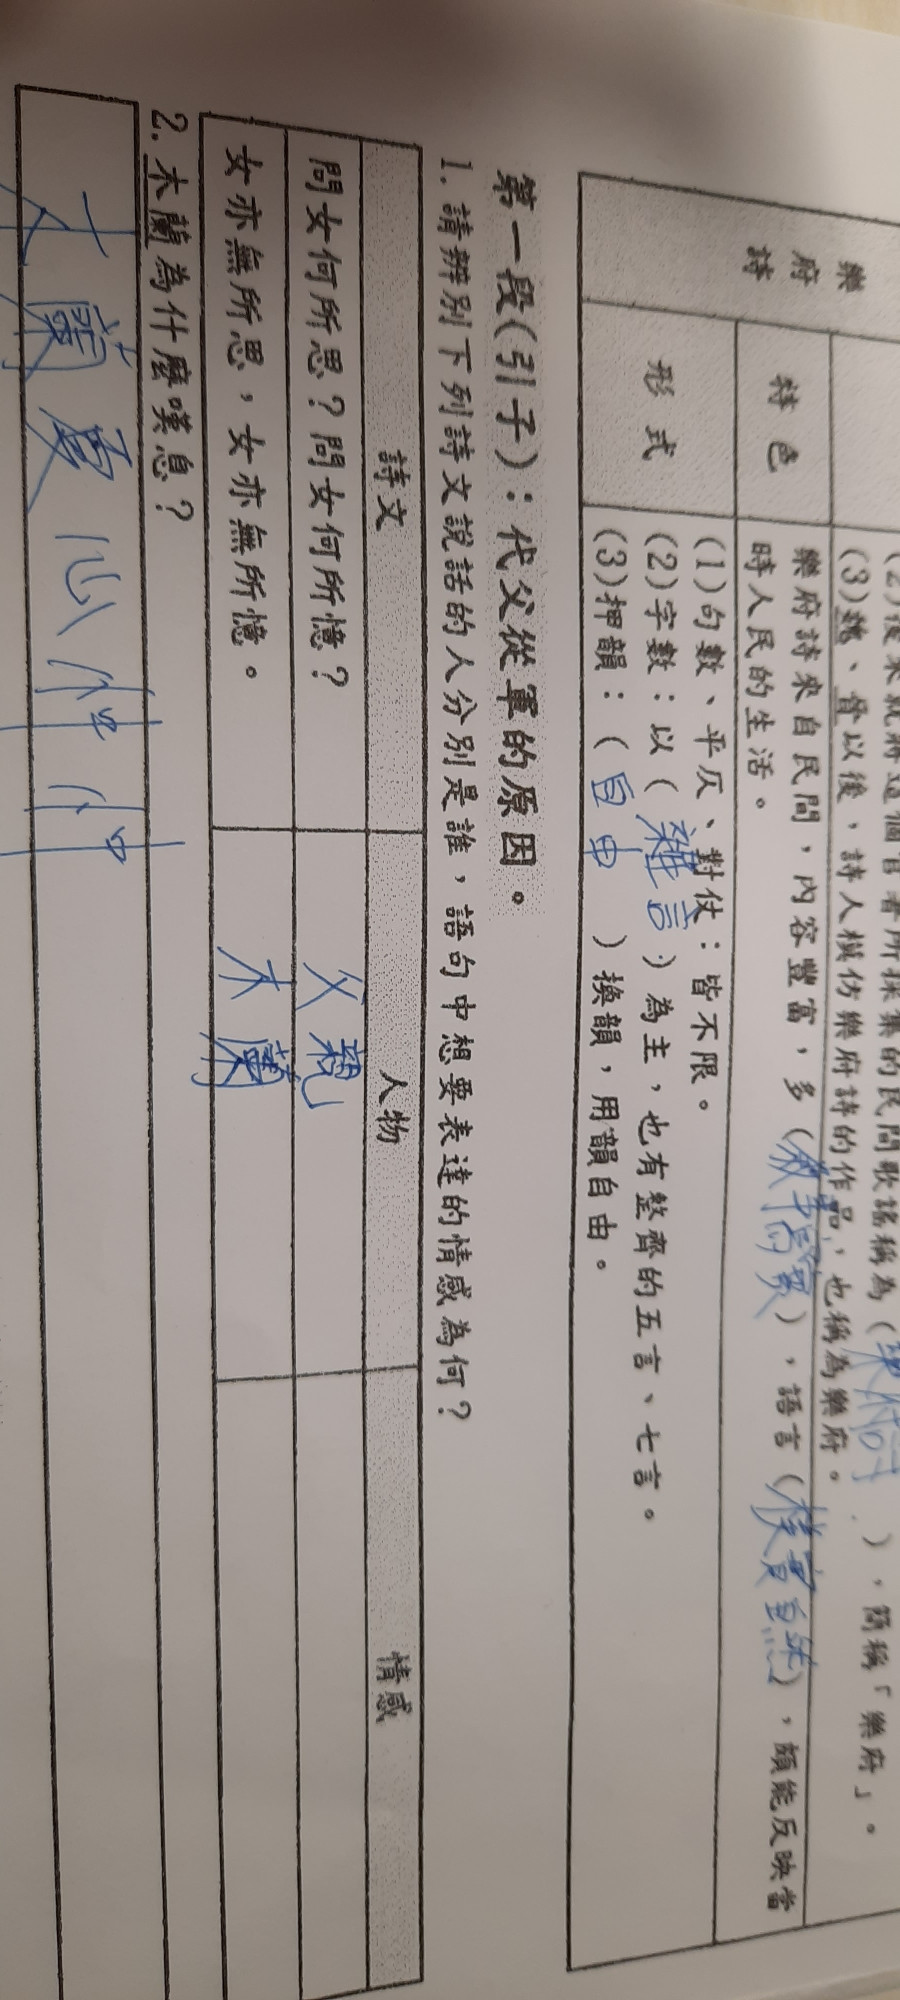 樂府詩
(2)後來就將這個官署所採集的民間歌謠稱為(樂府詩)，簡稱「樂府」。
(3)魏、晉以後，詩人模仿樂府詩的作品，也稱為樂府。
特色
樂府詩來自民間，內容豐富，多(敘事寫實)，語言(樸實自然)，頗能反映當
時人民的生活。
形式
(1)句數、平仄、對仗：皆不限。
(2)字數：以(雜言)為主，也有整齊的五言、七言。
(3)押韻：(自由)換韻，用韻自由。
第一段(引子)：代父從軍的原因。
1. 請辨別下列詩文說話的人分別是誰，語句中想要表達的情感為何？
詩文 人物 情感
問女何所思？問女何所憶？ 父親
女亦無所思，女亦無所憶。 木蘭
2. 木蘭為什麼嘆息？
木蘭憂心忡忡